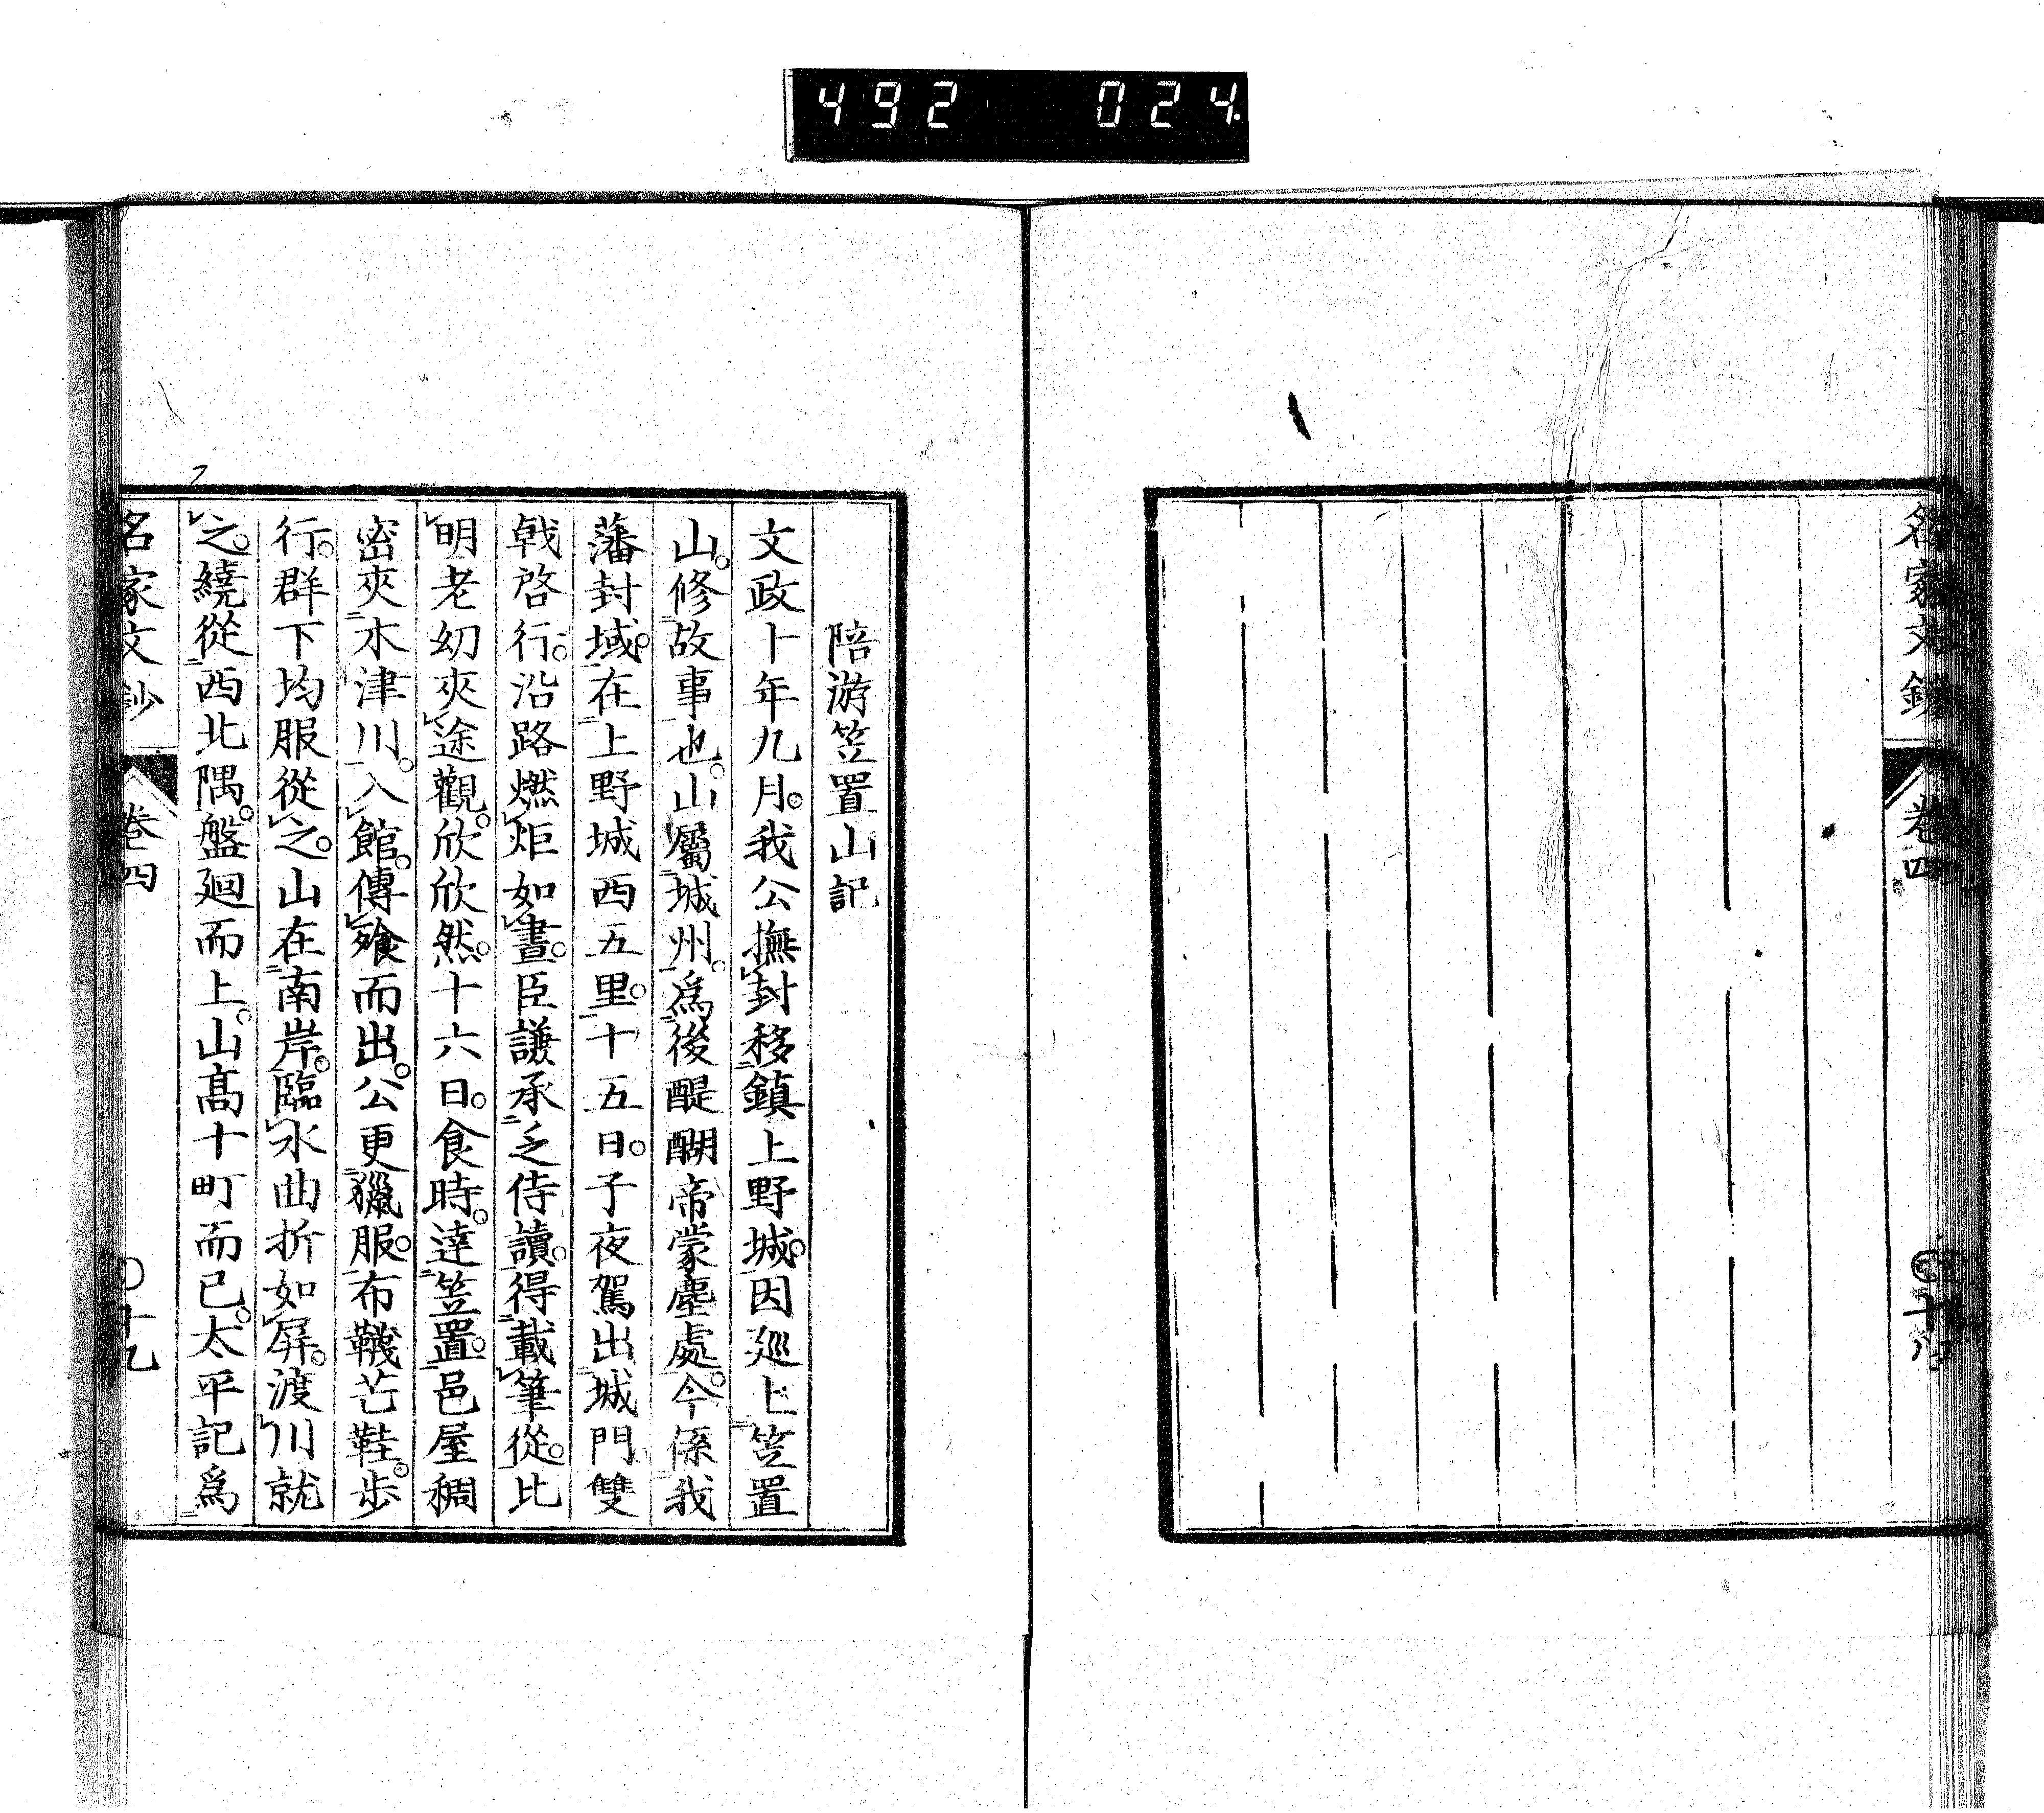 492 024
名家文鈔 卷四 十八
陪游笠置山記
文政十年九月。我公撫封移鎮上野城。因廵上笠置
山。修故事也。山屬城州。爲後醍醐帝蒙塵處。今係我
藩封域。在上野城西五里。十五日。子夜駕出城門雙
戟啓行。沿路燃炬如晝。臣謙承乏侍讀。得載筆從。比
明老幼夾途觀。欣欣然。十六日。食時。達笠置。邑屋稠
密夾木津川。入館。傳飧而出。公更獵服。布韈芒鞋。步
行。群下均服從之。山在南岸。臨水曲折如屏。渡川就
之。繞從西北隅。盤廻而上。山髙十町而已。太平記爲
名家文鈔 卷四 十九